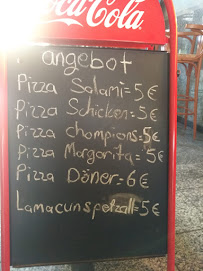 Coca-Cola
angebot
Pizza Salami = 5€
Pizza Schicken = 5€
Pizza champions = 5€
Pizza Margarita = 5€
Pizza Döner = 6€
Lamacun spetzall = 5€